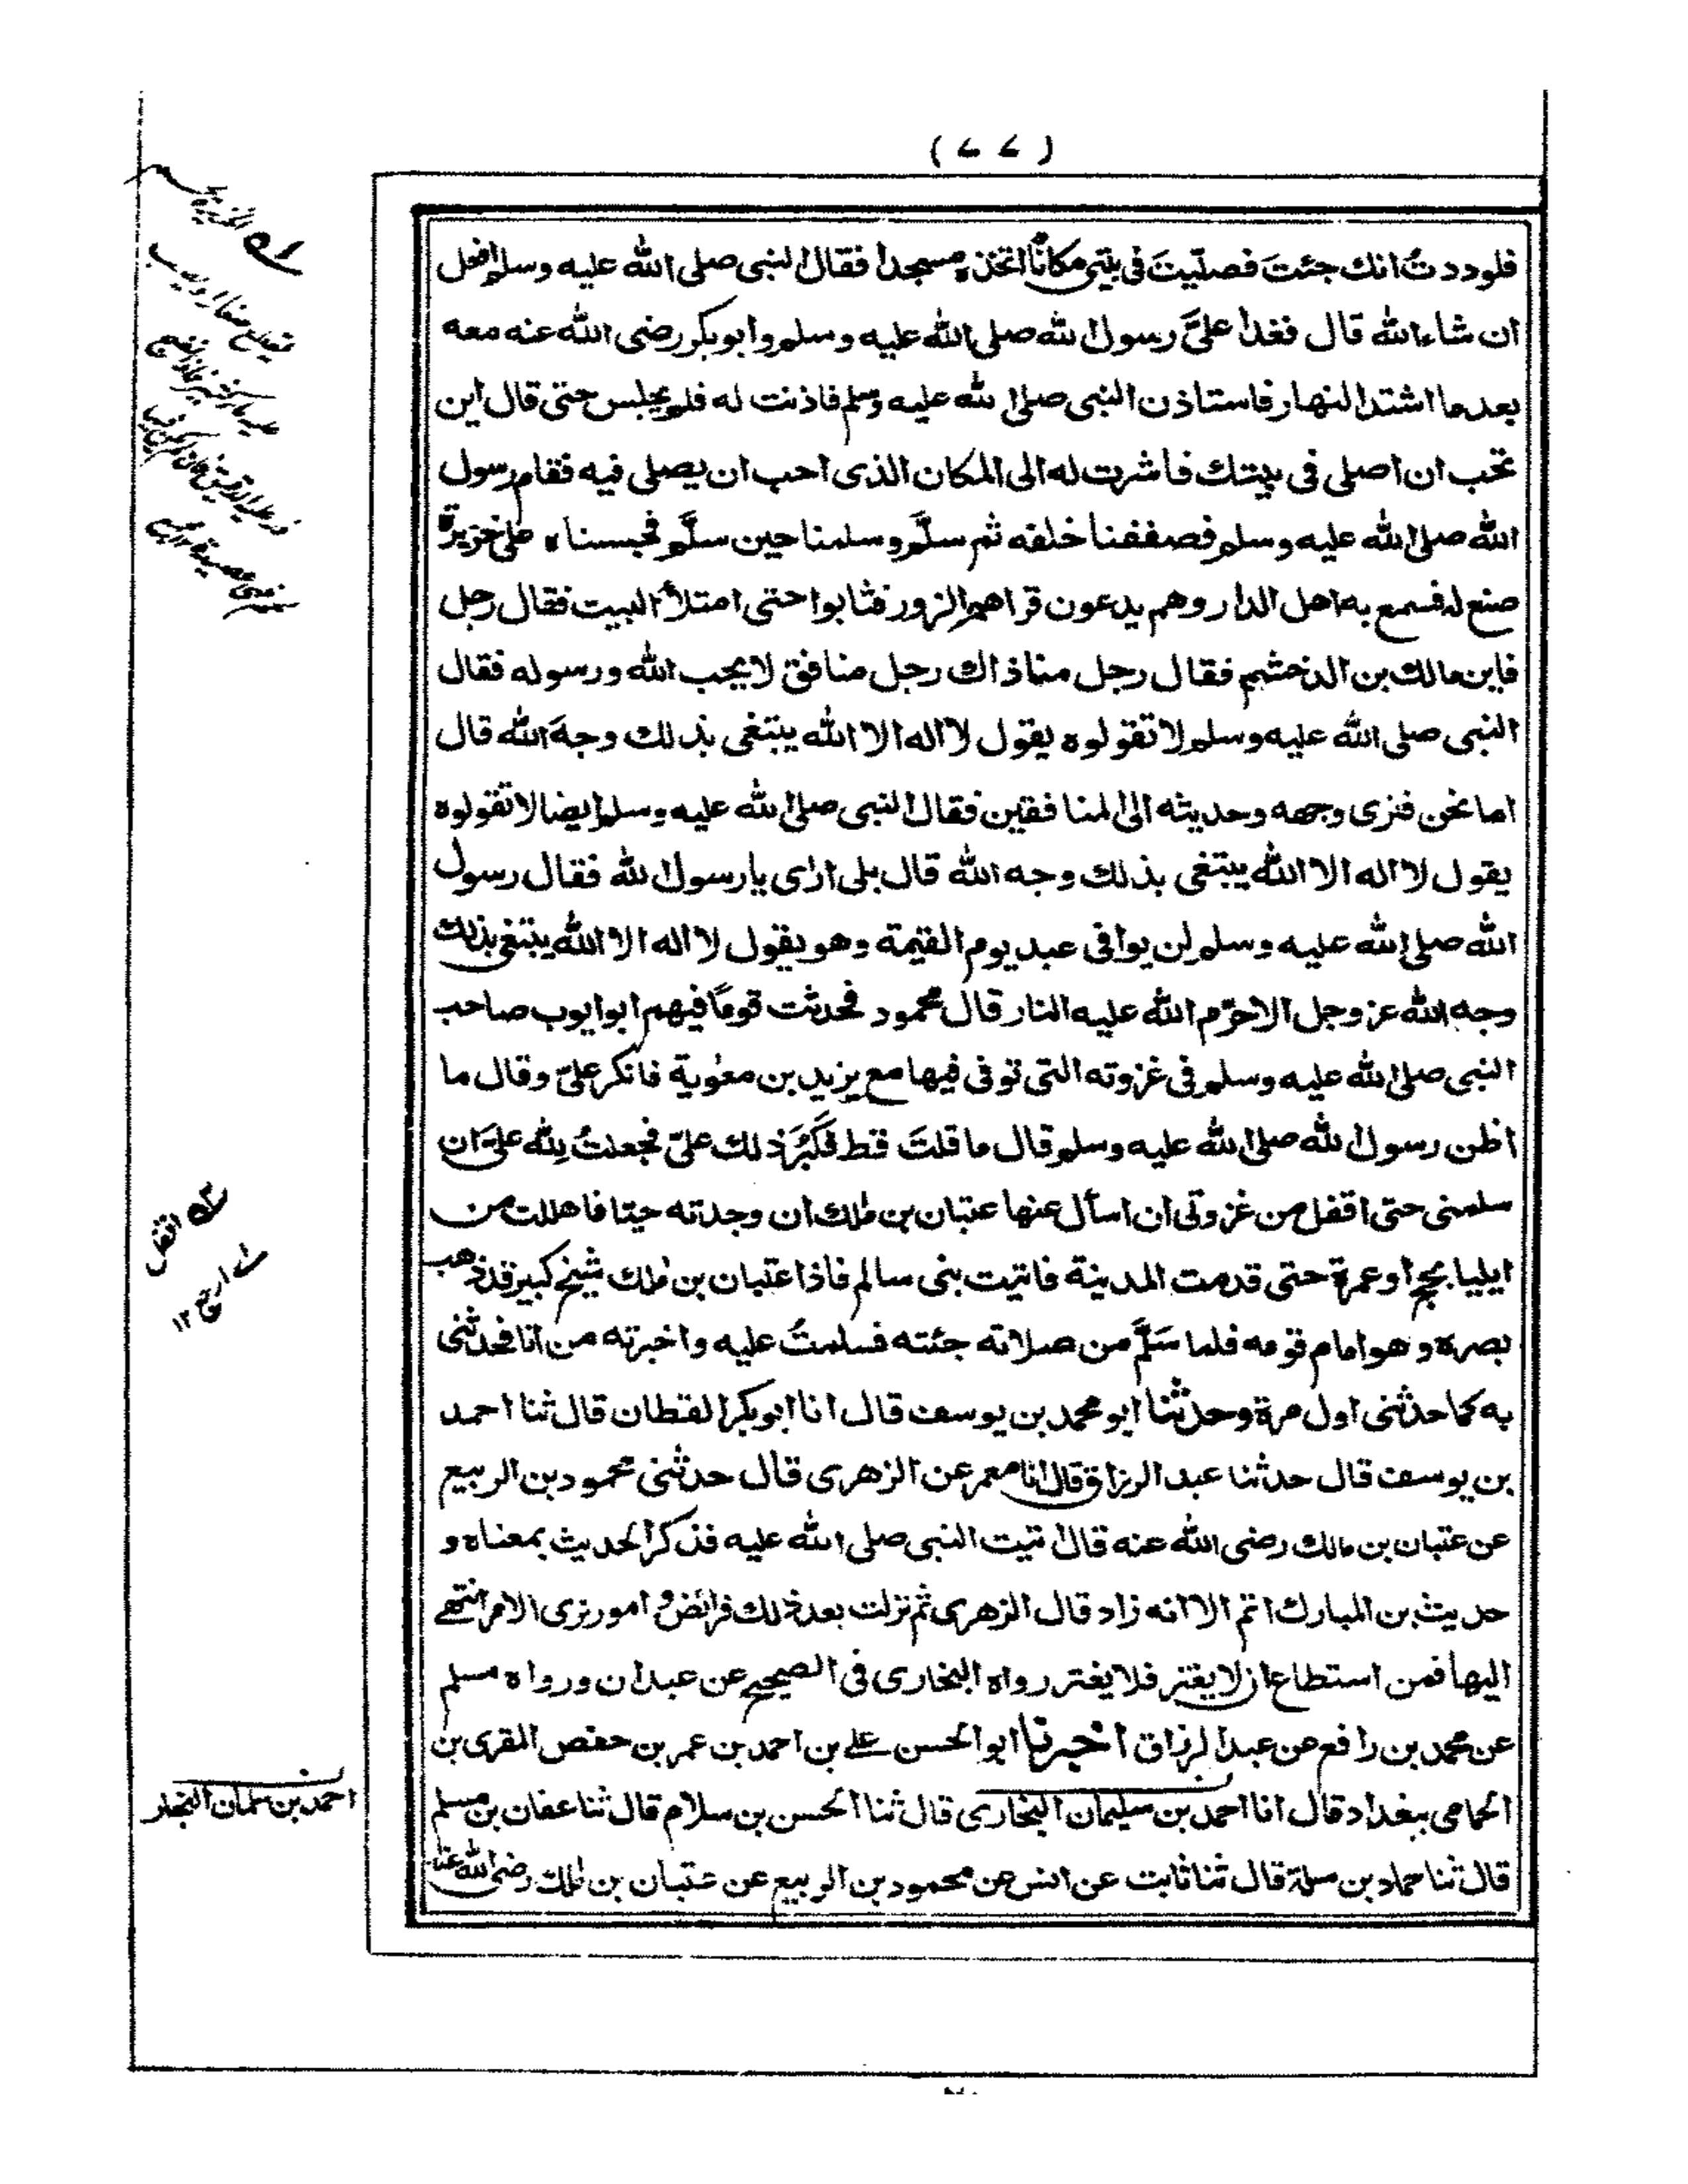 (۷۷)
فلوددتُ انك جئتَ فصلّيتَ فى بيتى مكانًا اتخذه مسجدا فقال النبى صلى الله عليه وسلم افعل
ان شاء الله قال فغدا علىَّ رسول الله صلى الله عليه وسلم وابوبكر رضى الله عنه معه
بعد ما اشتد النهار فاستاذن النبى صلى الله عليه وسلم فاذنت له فلم يجلس حتى قال اين
تحب ان اصلى فى بيتك فاشرت له الى المكان الذى احب ان يصلى فيه فقام رسول
الله صلى الله عليه وسلم فصففنا خلفه ثم سلَّم وسلمنا حين سلَّم فحبسناه على خزيرة
صنع له فسمع به اهل الدار وهم يدعون قراهم الزور فثابوا حتى امتلأ البيت فقال رجل
فاين مالك بن الدخشم فقال رجل منا ذاك رجل منافق لا يحب الله ورسوله فقال
النبى صلى الله عليه وسلم لا تقولوه يقول لا اله الا الله يبتغى بذلك وجهَ الله قال
اما نحن فنرى وجهه وحديثه الى المنافقين فقال النبى صلى الله عليه وسلم ايضا لا تقولوه
يقول لا اله الا الله يبتغى بذلك وجه الله قال بلى ارى يا رسول الله فقال رسول
الله صلى الله عليه وسلم لن يوافى عبد يوم القيمة وهو يقول لا اله الا الله يبتغى بذلك
وجه الله عز وجل الا حرّم الله عليه النار قال محمود فحدثت قومًا فيهم ابوايوب صاحب
النبى صلى الله عليه وسلم فى غزوته التى توفى فيها مع يزيد بن معٰوية فانكر علىّ وقال ما
اظن رسول الله صلى الله عليه وسلم قال ما قلتَ قط فكَبُرَ ذلك علىّ فجعلتُ لِلّٰه علىَّ ان
سلمنى حتى اقفل من غزوتى ان اسأل عنها عتبان بن مٰلك ان وجدته حيّا فاهللت من
ايليا بحج او عمرة حتى قدمت المدينة فاتيت بنى سالم فاذا عتبان بن مٰلك شيخ كبير قد ذهب
بصره وهو امام قومه فلما سَلَّم من صلاته جئته فسلمتُ عليه واخبرته من انا فحدثنى
به كما حدثنى اول مرة وحدثنا ابو محمد بن يوسف قال انا ابوبكر القطان قال ثنا احمد
بن يوسف قال حدثنا عبد الرزاق قال انا معمر عن الزهرى قال حدثنى محمود بن الربيع
عن عتبان بن مالك رضى الله عنه قال اتيت النبى صلى الله عليه فذكر الحديث بمعناه و
حديث بن المبارك اتم الا انه زاد قال الزهرى ثم نزلت بعد ذلك فرائض و امور نرى الامر انتهے
اليها فمن استطاع ان لا يغتر فلا يغتر رواه البخارى فى الصحيح عن عبدان ورواه مسلم
عن محمد بن رافع عن عبد الرزاق اخبرنا ابو الحسن على بن احمد بن عمر بن حفص المقرى بن
الحمامى ببغداد قال انا احمد بن سليمان البخارى قال ثنا الحسن بن سلام قال ثنا عفان بن مسلم
قال ثنا حماد بن سلمة قال ثنا ثابت عن انس عن محمود بن الربيع عن عتبان بن مٰلك رضى الله عنه
اقفل
اى ارجع ۱۲
احمد بن سلمان النجار